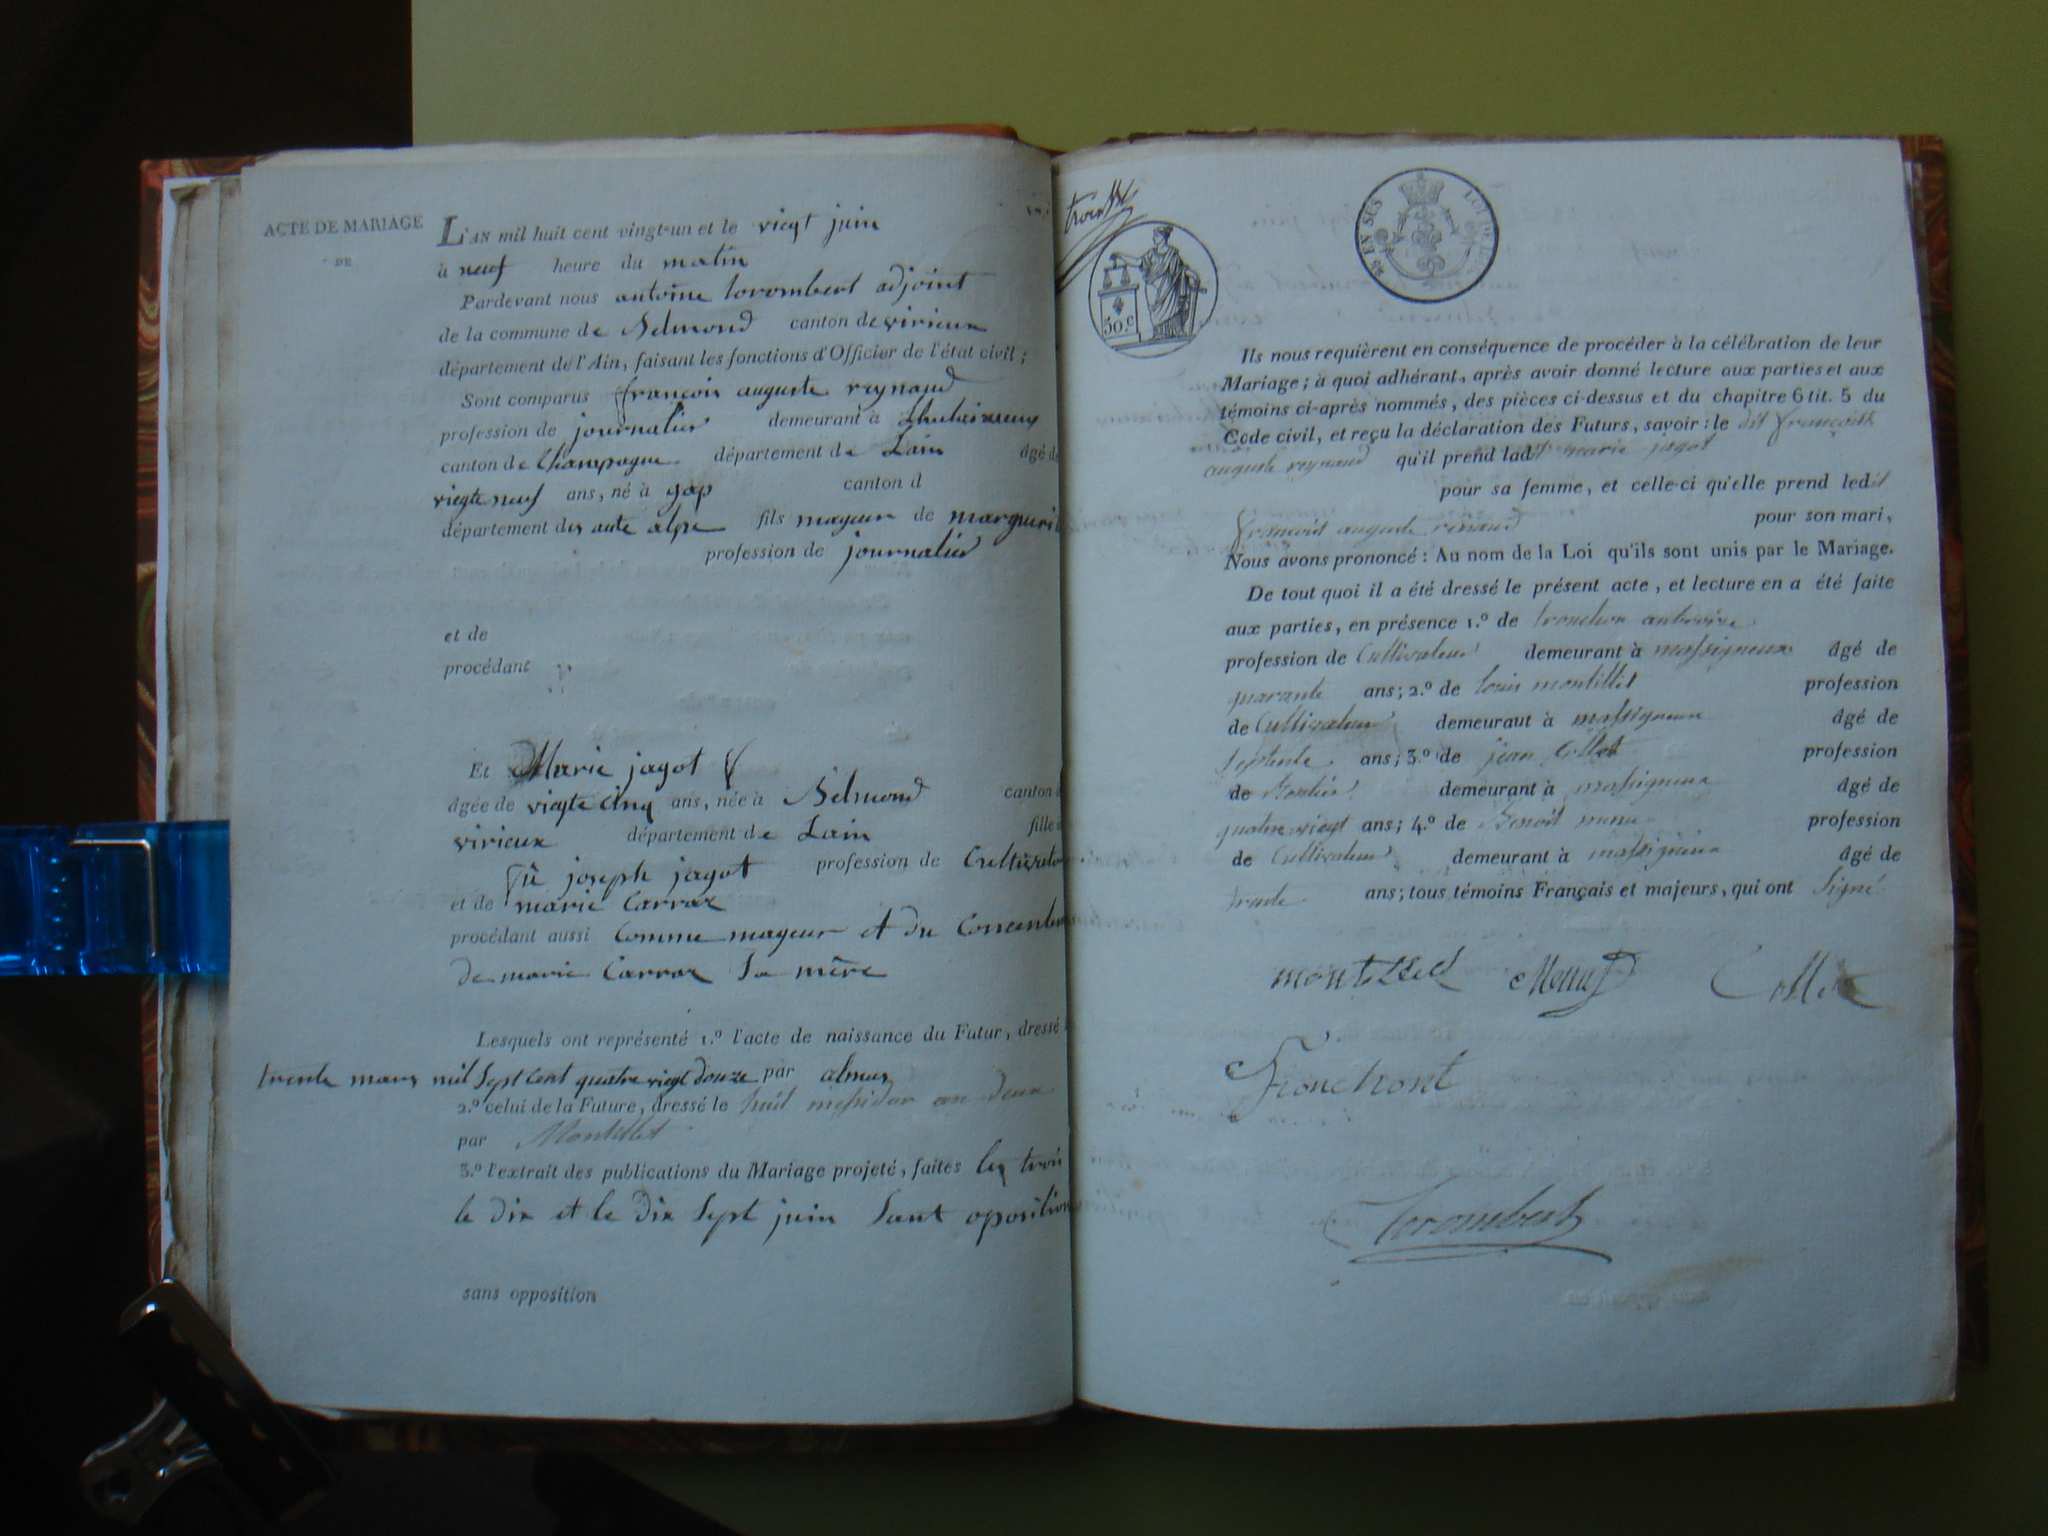 ACTE DE MARIAGE
DE
L'AN mil huit cent vingt-un et le viegt juin
à neuf heure du matin
Pardevant nous antoine torombert adjoint
de la commune de Belmond canton de virieux
département de l'Ain, faisant les fonctions d'Officier de l'état civil;
Sont comparus françois auguste reynaud
profession de journalier demeurant à
canton de Champagne département de Lain âgé de
viegte neuf ans, né à gap canton d
département des aute alpe fils mayeur de marguerit
profession de journalier
et de
procédant
Et Marie jagot
âgée de viegte cinq ans, née à Belmond canton d
virieux département de Lain fille d
fû joseph jagot profession de Cultivateu
et de marie Carraz
procédant aussi comme mayeur et du
de marie Carraz Sa mère
Lesquels ont représenté 1.º l'acte de naissance du Futur, dressé
trente mars mil Sept Cent quatre viegt douze par almas
2.º celui de la Future, dressé le huit messidor an deux
par Montillet
3.º l'extrait des publications du Mariage projeté, faites les trois
le dix et le dix Sept juin Sant oposition
sans opposition
50.c
EN SUS LOI DE
Ils nous requièrent en conséquence de procéder à la célébration de leur
Mariage; à quoi adhérant, après avoir donné lecture aux parties et aux
témoins ci-après nommés, des pièces ci-dessus et du chapitre 6 tit. 5 du
Code civil, et reçu la déclaration des Futurs, savoir: le dit françois
auguste reynaud qu'il prend ladt marie jagot
pour sa femme, et celle-ci qu'elle prend ledit
francois auguste rénaud pour son mari,
Nous avons prononcé: Au nom de la Loi qu'ils sont unis par le Mariage.
De tout quoi il a été dressé le présent acte, et lecture en a été faite
aux parties, en présence 1.º de tronchon
profession de Cultivateur demeurant à massigneux âgé de
quarante ans; 2.º de louis montillet profession
de Cultivateur demeuraut à massigneux âgé de
septente ans; 3.º de jean Collet profession
de Rentier demeurant à massigneux âgé de
quatre viegt ans; 4.º de Benoit menu profession
de Cultivateur demeurant à massigneux âgé de
trente ans; tous témoins Français et majeurs, qui ont Signé
montillet Menu Collet
Tronchont
torombert